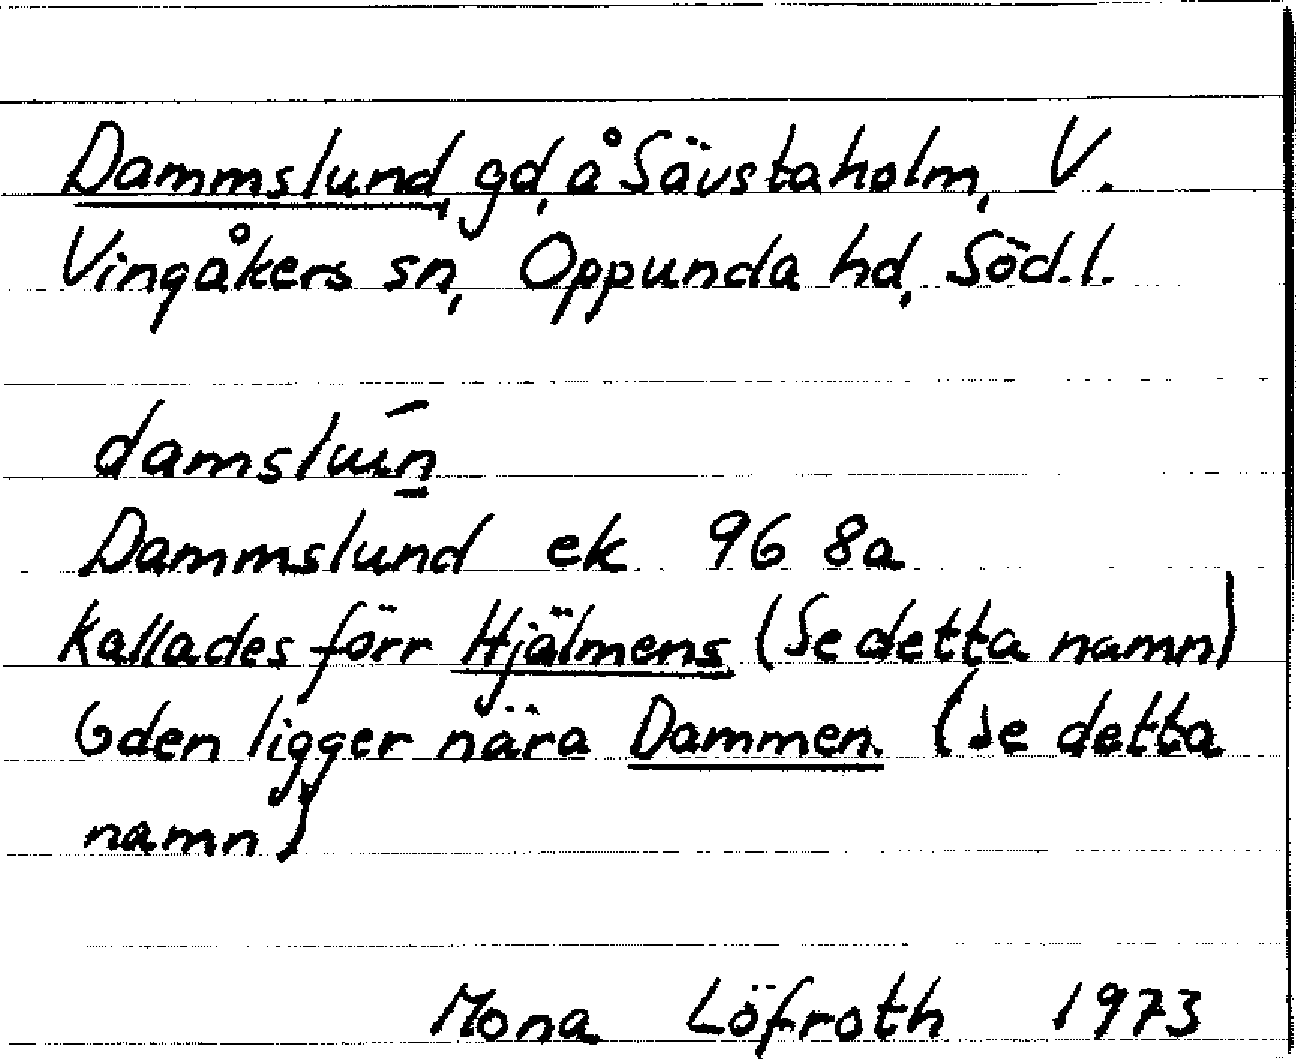 Dammslund, gd, å Sävstaholm, V.
Vingåkers sn, Oppunda hd, Söd.l.
Dammslund ek 96 8a
Kallades förr Hjälmens (Se detta namn)
Gden ligger nära Dammen. (Se detta
namn)
Mona Löfroth 1973